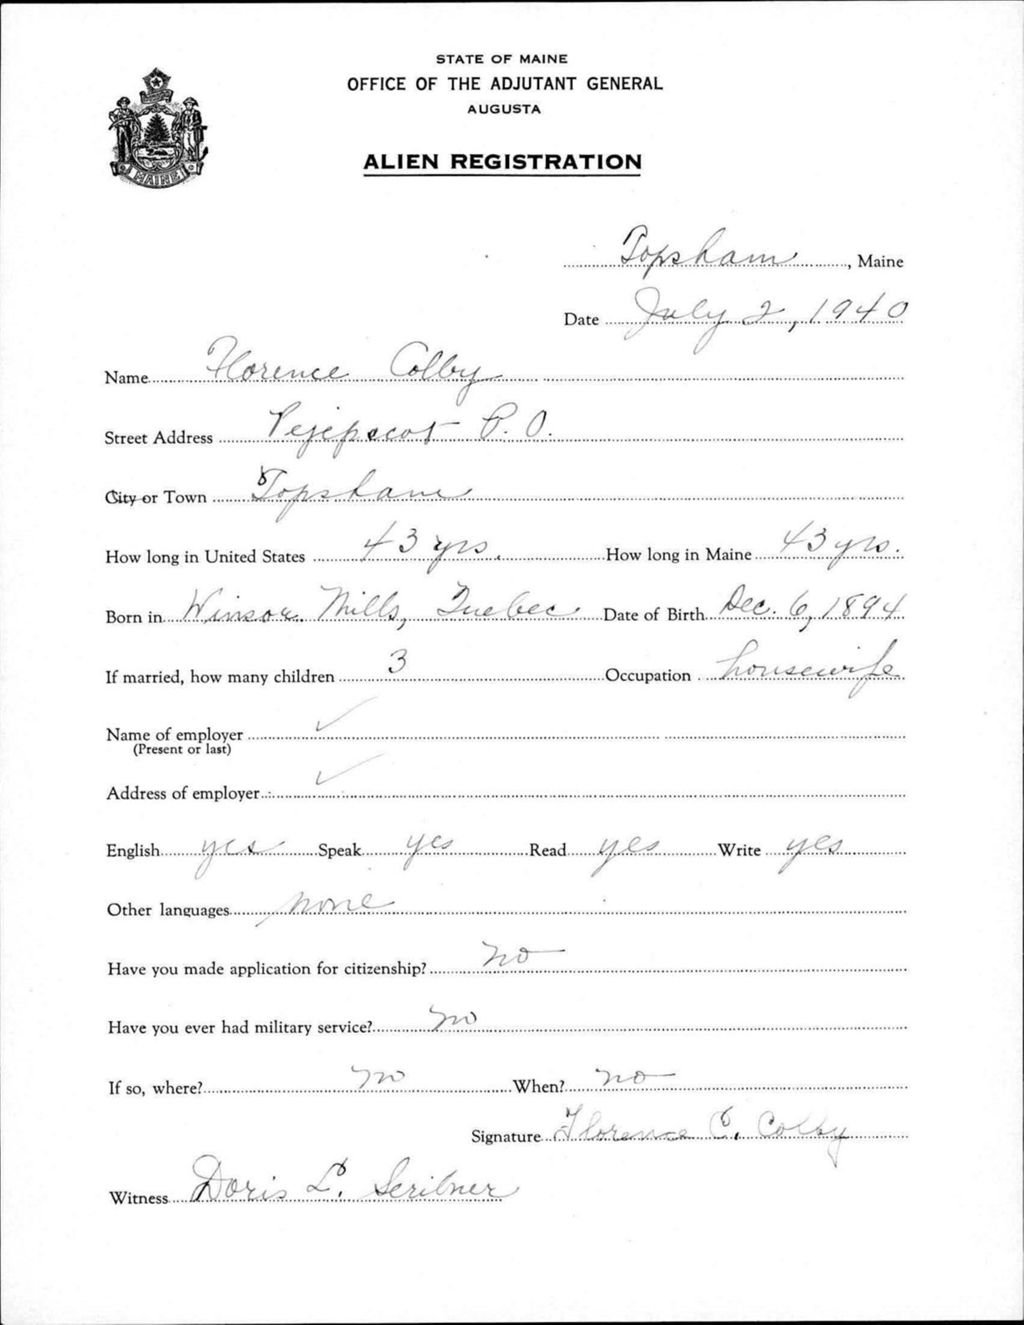 STATE OF MAINE
OFFICE OF THE ADJUTANT GENERAL
AUGUSTA
ALIEN REGISTRATION
MAINE
Topsham, Maine
Date July 2, 1940
Name Florence Colby
Street Address Pejepscot P.O.
City or Town Topsham
How long in United States 43 yrs. How long in Maine 43 yrs.
Born in Winsor Mills, Quebec Date of Birth Dec. 6, 1894
If married, how many children 3 Occupation housewife
Name of employer
(Present or last)
Address of employer
English yes Speak yes Read yes Write yes
Other languages none
Have you made application for citizenship? no
Have you ever had military service? no
If so, where? no When? no
Signature Florence C. Colby
Witness Doris L. Scribner